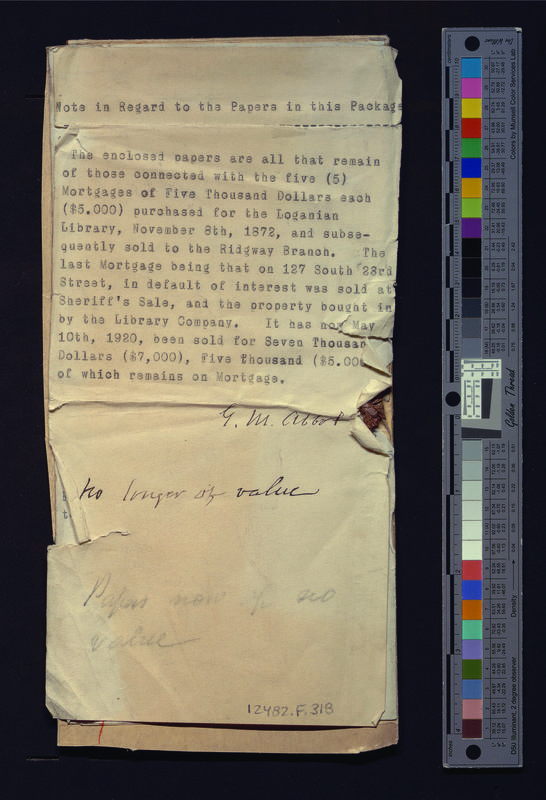 Note in Regard to the Papers in this Package
The enclosed papers are all that remain
of those connected with the five (5)
Mortgages of Five Thousand Dollars each
($5.000) purchased for the Loganian
Library, November 8th, 1872, and subse-
quently sold to the Ridgway Branch. The
last Mortgage being that on 127 South 23rd
Street, in default of interest was sold at
Sheriff's Sale, and the property bought in
by the Library Company. It has now May
10th, 1920, been sold for Seven Thousan
Dollars ($7,000), Five Thousand ($5.00
of which remains on Mortgage.
G. M. Abbot
No longer of value
Papers now of no
value
12482.F.318
Colors by Munsell Color Services Lab
Golden Thread
Density
DSU Illuminant, 2 degree observer
inches
centimeters